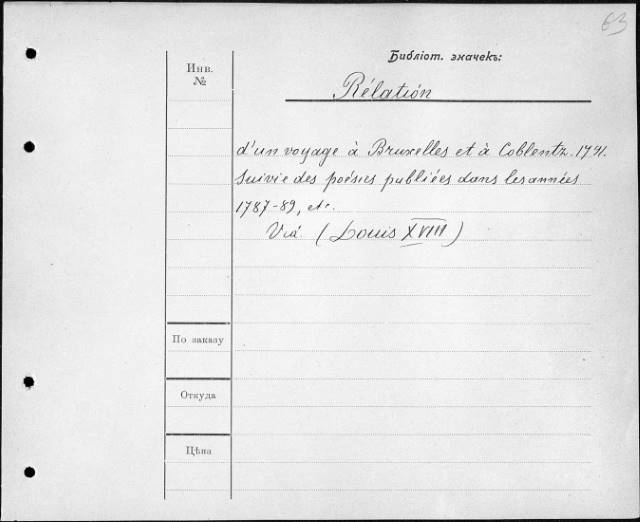 63
Библіот. значекъ:
Инв.
№
Rélation
d'un voyage à Bruxelles et à Coblentz. 1791.
Suivie des poésies publiées dans les années
1787-89, etc.
Vid. (Louis XVIII)
По заказу
Откуда
Цѣна